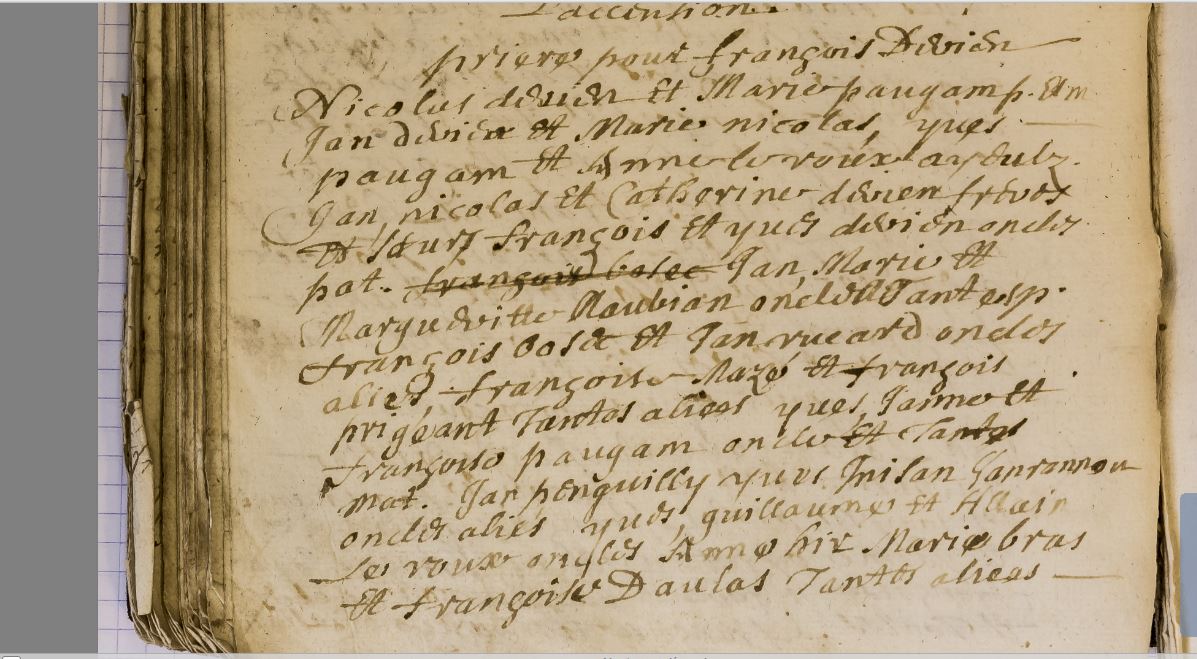 L'accension.
priere pour françois Divien
Nicolas divien et Marie paugam p. et m
Jan divien et Marie nicolas, yues
paugam et Anne le roux ayeulz.
Jan, nicolas et Catherine divien freres
et sœurs françois et yues divien oncles
pat. françois bosec Jan, Marie et
Margueritte Maubian oncle et Tantes p.
françois bosec et Jan rucard oncles
aliés françoise Mazé et françois
prigeant Tantes aliees yues, Janne et
françoise paugam oncle et Tantes
mat. Jan penguilly yues Inisan Jan
oncles aliés yues, guillaume et Allain
Le roux oncles Anne hir Marie bras
et françoise Daulas Tantes aliees